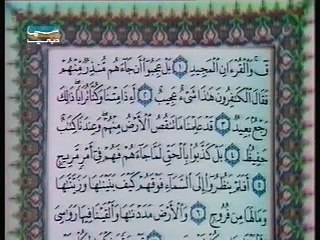 قٓ ۚ وَٱلْقُرْءَانِ ٱلْمَجِيدِ ١ بَلْ عَجِبُوٓا۟ أَن جَآءَهُم مُّنذِرٌ مِّنْهُمْ
فَقَالَ ٱلْكَٰفِرُونَ هَٰذَا شَىْءٌ عَجِيبٌ ٢ أَءِذَا مِتْنَا وَكُنَّا تُرَابًا ۖ ذَٰلِكَ
رَجْعٌۢ بَعِيدٌ ٣ قَدْ عَلِمْنَا مَا تَنقُصُ ٱلْأَرْضُ مِنْهُمْ ۖ وَعِندَنَا كِتَٰبٌ
حَفِيظٌۢ ٤ بَلْ كَذَّبُوا۟ بِٱلْحَقِّ لَمَّا جَآءَهُمْ فَهُمْ فِىٓ أَمْرٍ مَّرِيجٍ
٥ أَفَلَمْ يَنظُرُوٓا۟ إِلَى ٱلسَّمَآءِ فَوْقَهُمْ كَيْفَ بَنَيْنَٰهَا وَزَيَّنَّٰهَا
وَمَا لَهَا مِن فُرُوجٍ ٦ وَٱلْأَرْضَ مَدَدْنَٰهَا وَأَلْقَيْنَا فِيهَا رَوَٰسِىَ